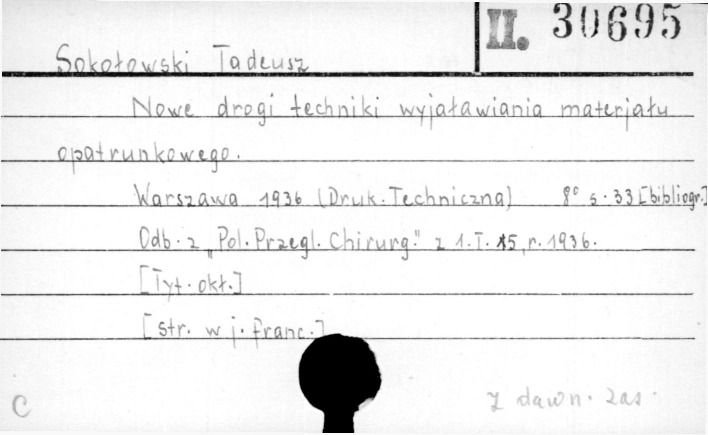 II. 30695
Sokołowski Tadeusz
Nowe drogi techniki wyjaławiania materjału
opatrunkowego.
Warszawa 1936 (Druk. Techniczna) 8° s. 33 [bibliogr.]
Odb. z "Pol. Przegl. Chirurg." z 1. T. 15, r. 1936.
[Tyt. okł.]
[str. w j. franc.]
C z dawn. zas.